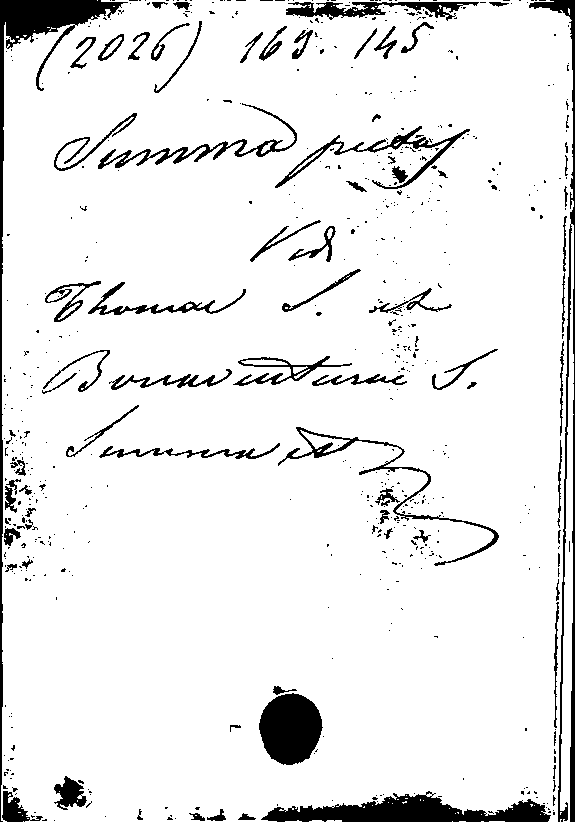 (2026) 169. 145
Summa pietas
Vidi
Thomae S. et
Bonaventurae S.
Summa est